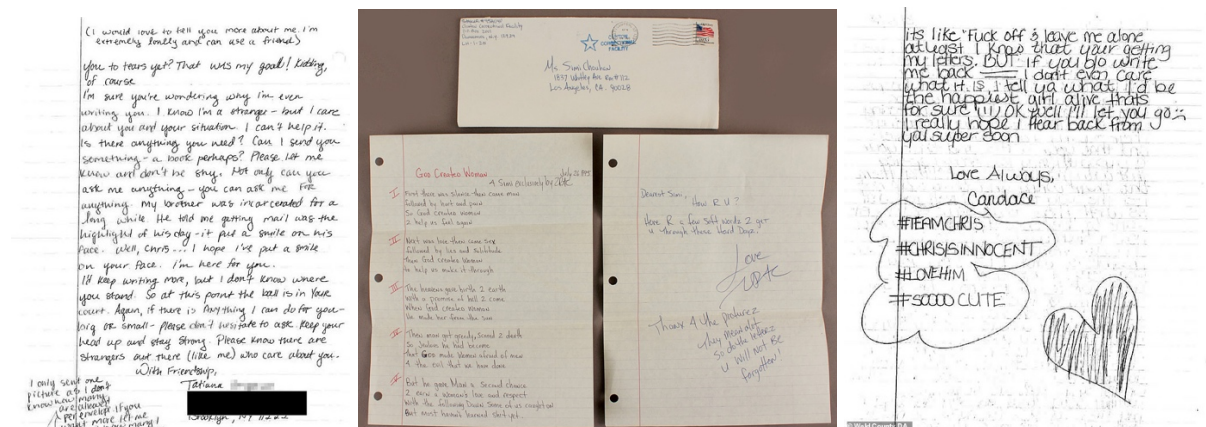 (I would love to tell you more about me. I'm
extremely lonely and can use a friend)
you to tears yet? That was my goal! Kidding,
of course
I'm sure you're wondering why I'm even
writing you. I know I'm a stranger - but I care
about you and your situation. I can't help it.
Is there anything you need? Can I send you
something - a book perhaps? Please let me
know and don't be shy. Not only can you
ask me anything - you can ask me FOR
anything. My brother was incarcerated for a
long while. He told me getting mail was the
highlight of his day - it put a smile on his
face. Well, Chris... I hope I've put a smile
on your face. I'm here for you.
I'd keep writing more, but I don't know where
you stand. So at this point the ball is in your
court. Again, if there is anything I can do for you -
big or small - please don't hesitate to ask. Keep your
head up and stay strong. Please know there are
strangers out there (like me) who care about you.
With Friendship,
Tatiana
Brooklyn, NY
I only sent one
picture as I don't
know how many
are allowed
per envelope. If you
want more let me
know how many I
Correctional Facility
CORRECTIONAL
FACILITY
Ms. Simi Chouhan
Los Angeles, CA. 90028
God Created Woman
4 Simi exclusively by
I. First there was silence then came man
followed by hurt and pain
So God created woman
2 help us feel again
II. Next was love then came sex
followed by lies and
Then God created Woman
to help us make it through
III. The heavens gave birth 2 earth
With a promise of hell 2 come
When God created Woman
He made her from the sun
IV. Then man got greedy, sinned 2 death
So jealous he had become
that God made Woman afraid of man
4 the evil that we have done
V. But he gave Man a second chance
2 earn a woman's love and respect
With the following Dawn some of us caught on
But most haven't learned
Dearest Simi,
How R U?
Here R a few soft words 2 get
u through these Hard Dayz.
Love
Thanx 4 the picturez
They mean alot
So do the letterz
U will not Be
forgotten!
its like "Fuck off & leave me alone
atleast I know that your getting
my letters. BUT if you DO write
me back I don't even care
what it is, I tell ya what I'd be
the happiest girl alive thats
for sure!!!) OK well I'll let you go
I really hope I Hear back from
ya! super soon
Love Always,
Candace
#TEAMCHRIS
#CHRISISINNOCENT
#LOVEHIM
#SOOOO CUTE
© Weld County DA